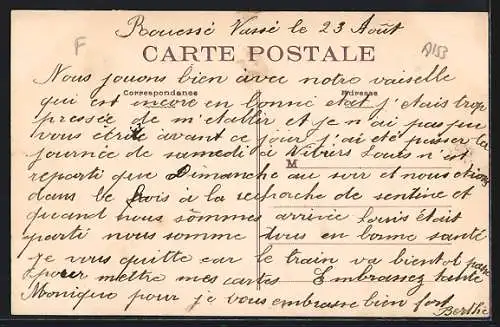 Rouessé Vassé le 23 Août
F
A153
CARTE POSTALE
Nous jouons bien avec notre vaiselle
Correspondance
Adresse
qui est encore en bonne etat j'etais trop
pressée de m'etablir et je n'ai pas pu
vous écrire avant ce jour j'ai été passer la
journée de samedi à Louis n'est
M
reparti que Dimanche au soir et nous étions
dans le bois à la recherche de sentine et
quand nous sommes arrivée Louis était
parti nous somme tous en bonne santé
Je vous quitte car le train va bientot passé
pour mettre mes cartes Embrassez tante
Monique pour je vous embrasse bien fort
Berthe